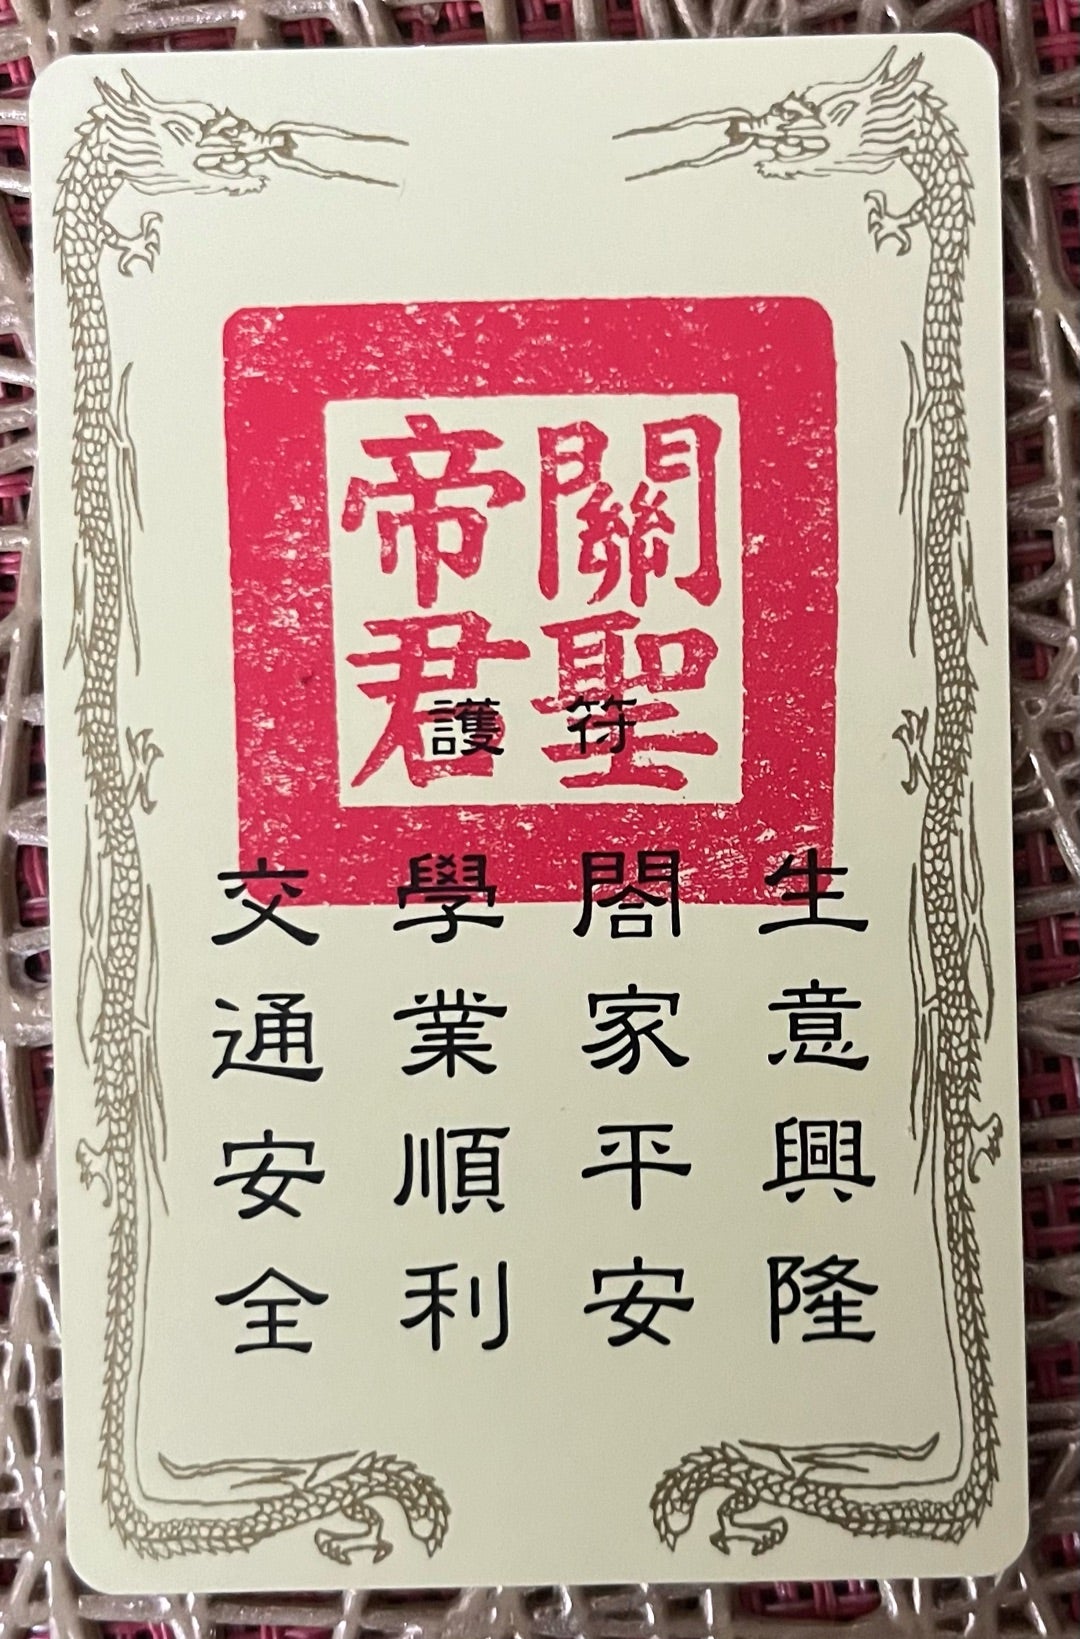 關聖
帝君
護符
生意興隆
閤家平安
學業順利
交通安全